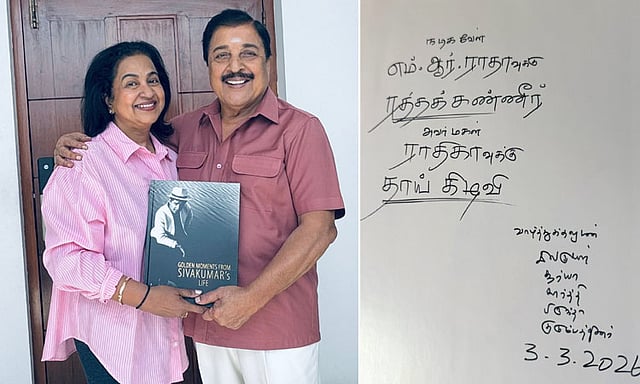 GOLDEN MOMENTS FROM
SIVAKUMAR's
LIFE
நடிக வேள்
எம். ஆர். ராதாவுக்கு
ரத்தக் கண்ணீர்
அவர் மகள்
ராதிகாவுக்கு
தாய் கிழவி
வாழ்த்துக்களுடன்
சூர்யா
கார்த்தி
பிருந்தா
குடும்பத்தினர்
3.3.2026